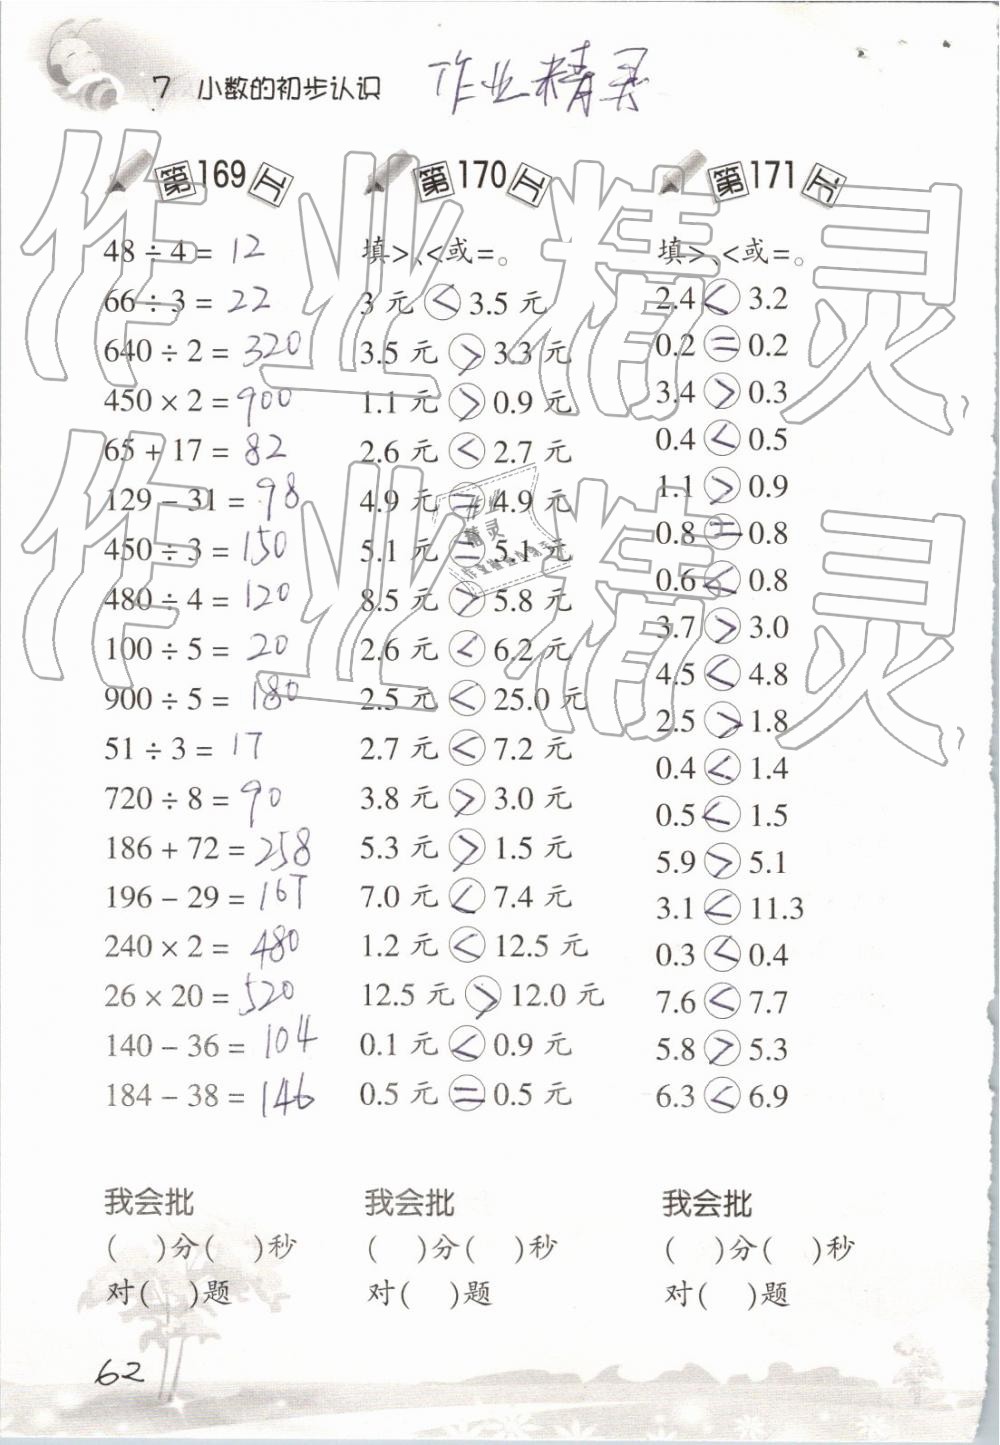 7 小数的初步认识 作业精灵
第169天
48 ÷ 4 = 12
66 ÷ 3 = 22
640 ÷ 2 = 320
450 × 2 = 900
65 + 17 = 82
129 − 31 = 98
450 ÷ 3 = 150
480 ÷ 4 = 120
100 ÷ 5 = 20
900 ÷ 5 = 180
51 ÷ 3 = 17
720 ÷ 8 = 90
186 + 72 = 258
196 − 29 = 167
240 × 2 = 480
26 × 20 = 520
140 − 36 = 104
184 − 38 = 146
我会批
( )分( )秒
对( )题
第170天
填>、<或=。
3 元 < 3.5 元
3.5 元 > 3.3 元
1.1 元 > 0.9 元
2.6 元 < 2.7 元
4.9 元 = 4.9 元
5.1 元 = 5.1 元
8.5 元 > 5.8 元
2.6 元 < 6.2 元
2.5 元 < 25.0 元
2.7 元 < 7.2 元
3.8 元 > 3.0 元
5.3 元 > 1.5 元
7.0 元 < 7.4 元
1.2 元 < 12.5 元
12.5 元 > 12.0 元
0.1 元 < 0.9 元
0.5 元 = 0.5 元
我会批
( )分( )秒
对( )题
第171天
填>、<或=。
2.4 < 3.2
0.2 = 0.2
3.4 > 0.3
0.4 < 0.5
1.1 > 0.9
0.8 = 0.8
0.6 < 0.8
3.7 > 3.0
4.5 < 4.8
2.5 > 1.8
0.4 < 1.4
0.5 < 1.5
5.9 > 5.1
3.1 < 11.3
0.3 < 0.4
7.6 < 7.7
5.8 > 5.3
6.3 < 6.9
我会批
( )分( )秒
对( )题
62
作业精灵
作业精灵
作业
精灵